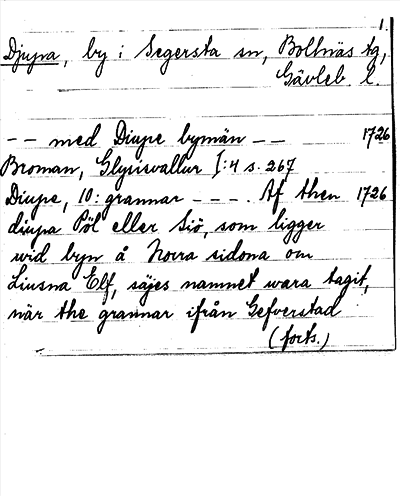 1.
Djupa, by i Segersta sn, Bollnäs tg,
Gävleb. l.
-- med Diupe bymän -- 1726
Broman, Glysisvallur I:4 s. 267
Diupe, 10: grannar ---- . Af then 1726
diupa Pöl eller Siö, som ligger
wid byn å Norra sidona om
Liusna Elf, säjes namnet wara tagit,
när the grannar ifrån Gefverstad
(forts.)